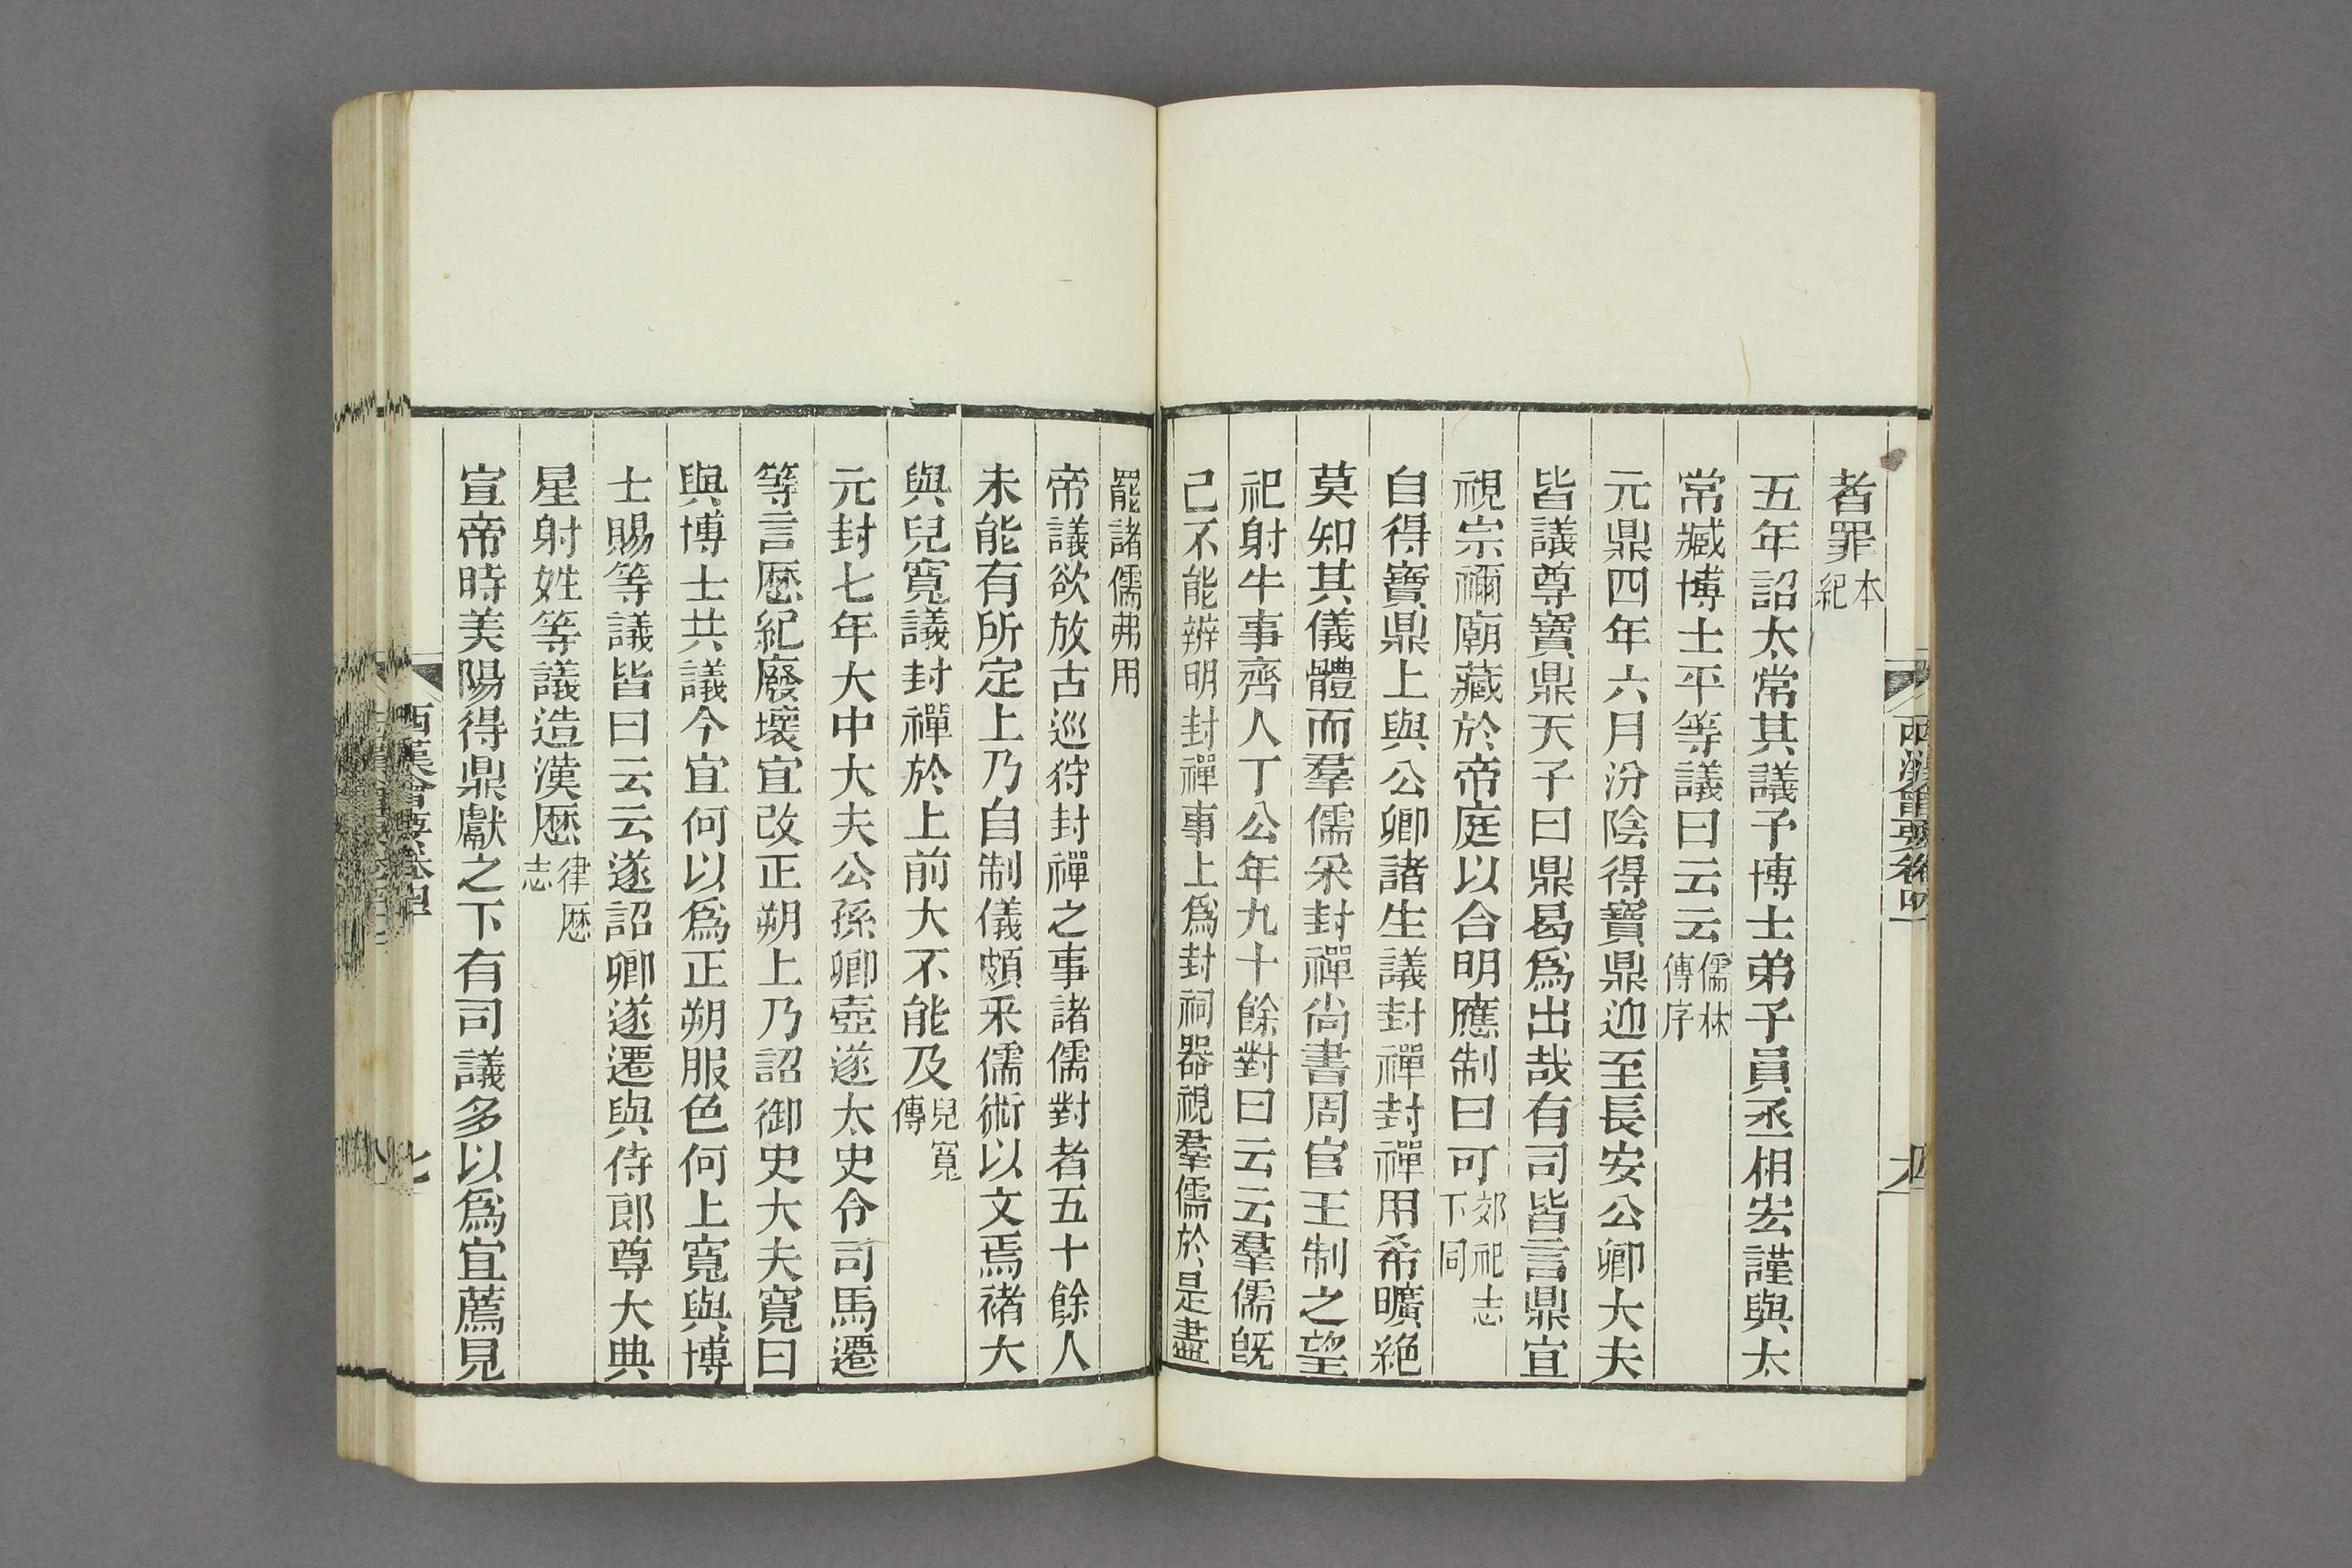 者罪本紀
五年詔太常其議予博士弟子員丞相宏謹與太
常臧博士平等議曰云云儒林傳序
元鼎四年六月汾陰得寶鼎迎至長安公卿大夫
皆議尊寶鼎天子曰鼎曷爲出哉有司皆言鼎宜
視宗禰廟藏於帝庭以合明應制曰可郊祀志下同
自得寶鼎上與公卿諸生議封禪封禪用希曠絶
莫知其儀體而羣儒采封禪尚書周官王制之望
祀射牛事齊人丁公年九十餘對曰云云羣儒旣
已不能辨明封禪事上爲封祠器視羣儒於是盡
罷諸儒弗用
帝議欲放古巡狩封禪之事諸儒對者五十餘人
未能有所定上乃自制儀頗采儒術以文焉褚大
與兒寬議封禪於上前大不能及兒寬傳
元封七年大中大夫公孫卿壺遂太史令司馬遷
等言厯紀廢壞宜改正朔上乃詔御史大夫寬曰
與博士共議今宜何以爲正朔服色何上寬與博
士賜等議皆曰云云遂詔卿遂遷與侍郎尊大典
星射姓等議造漢厯律厯志
宣帝時美陽得鼎獻之下有司議多以爲宜薦見
西漢會要卷四
七